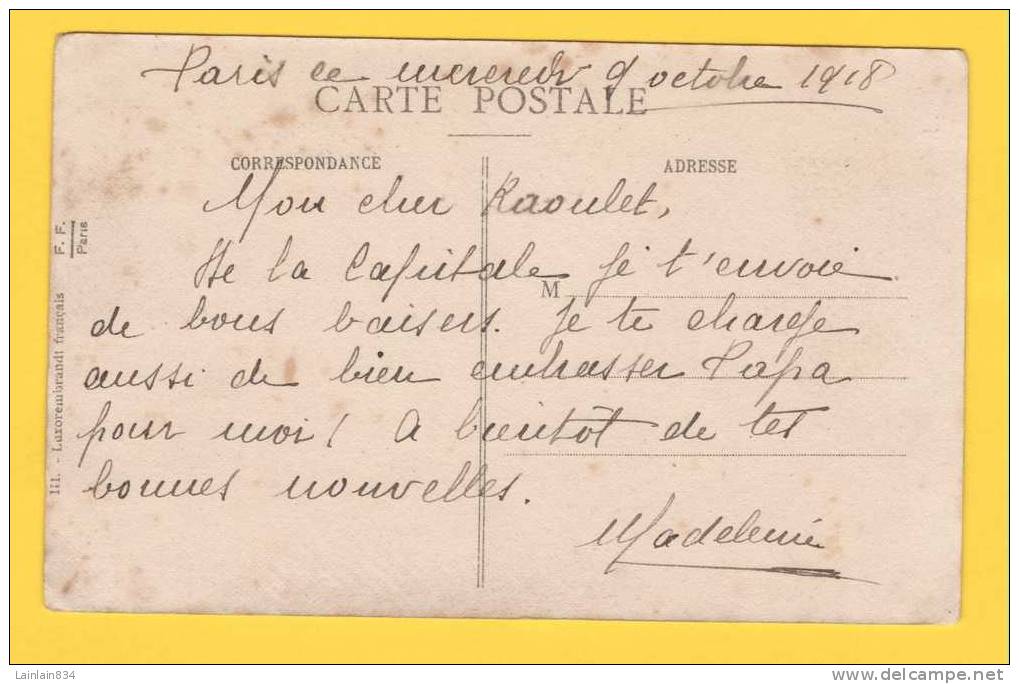 Paris ce mercredi 9 octobre 1918
CARTE POSTALE
CORRESPONDANCE
ADRESSE
Mon cher Raoulet,
De la Capitale je t'envoie
M
de bons baisers. Je te charge
aussi de bien embrasser Papa
pour moi! A bientôt de tes
bonnes nouvelles.
Madeleine
III. - Luxorembrandt français F. F. Paris
Lainlain834
www.delcampe.net